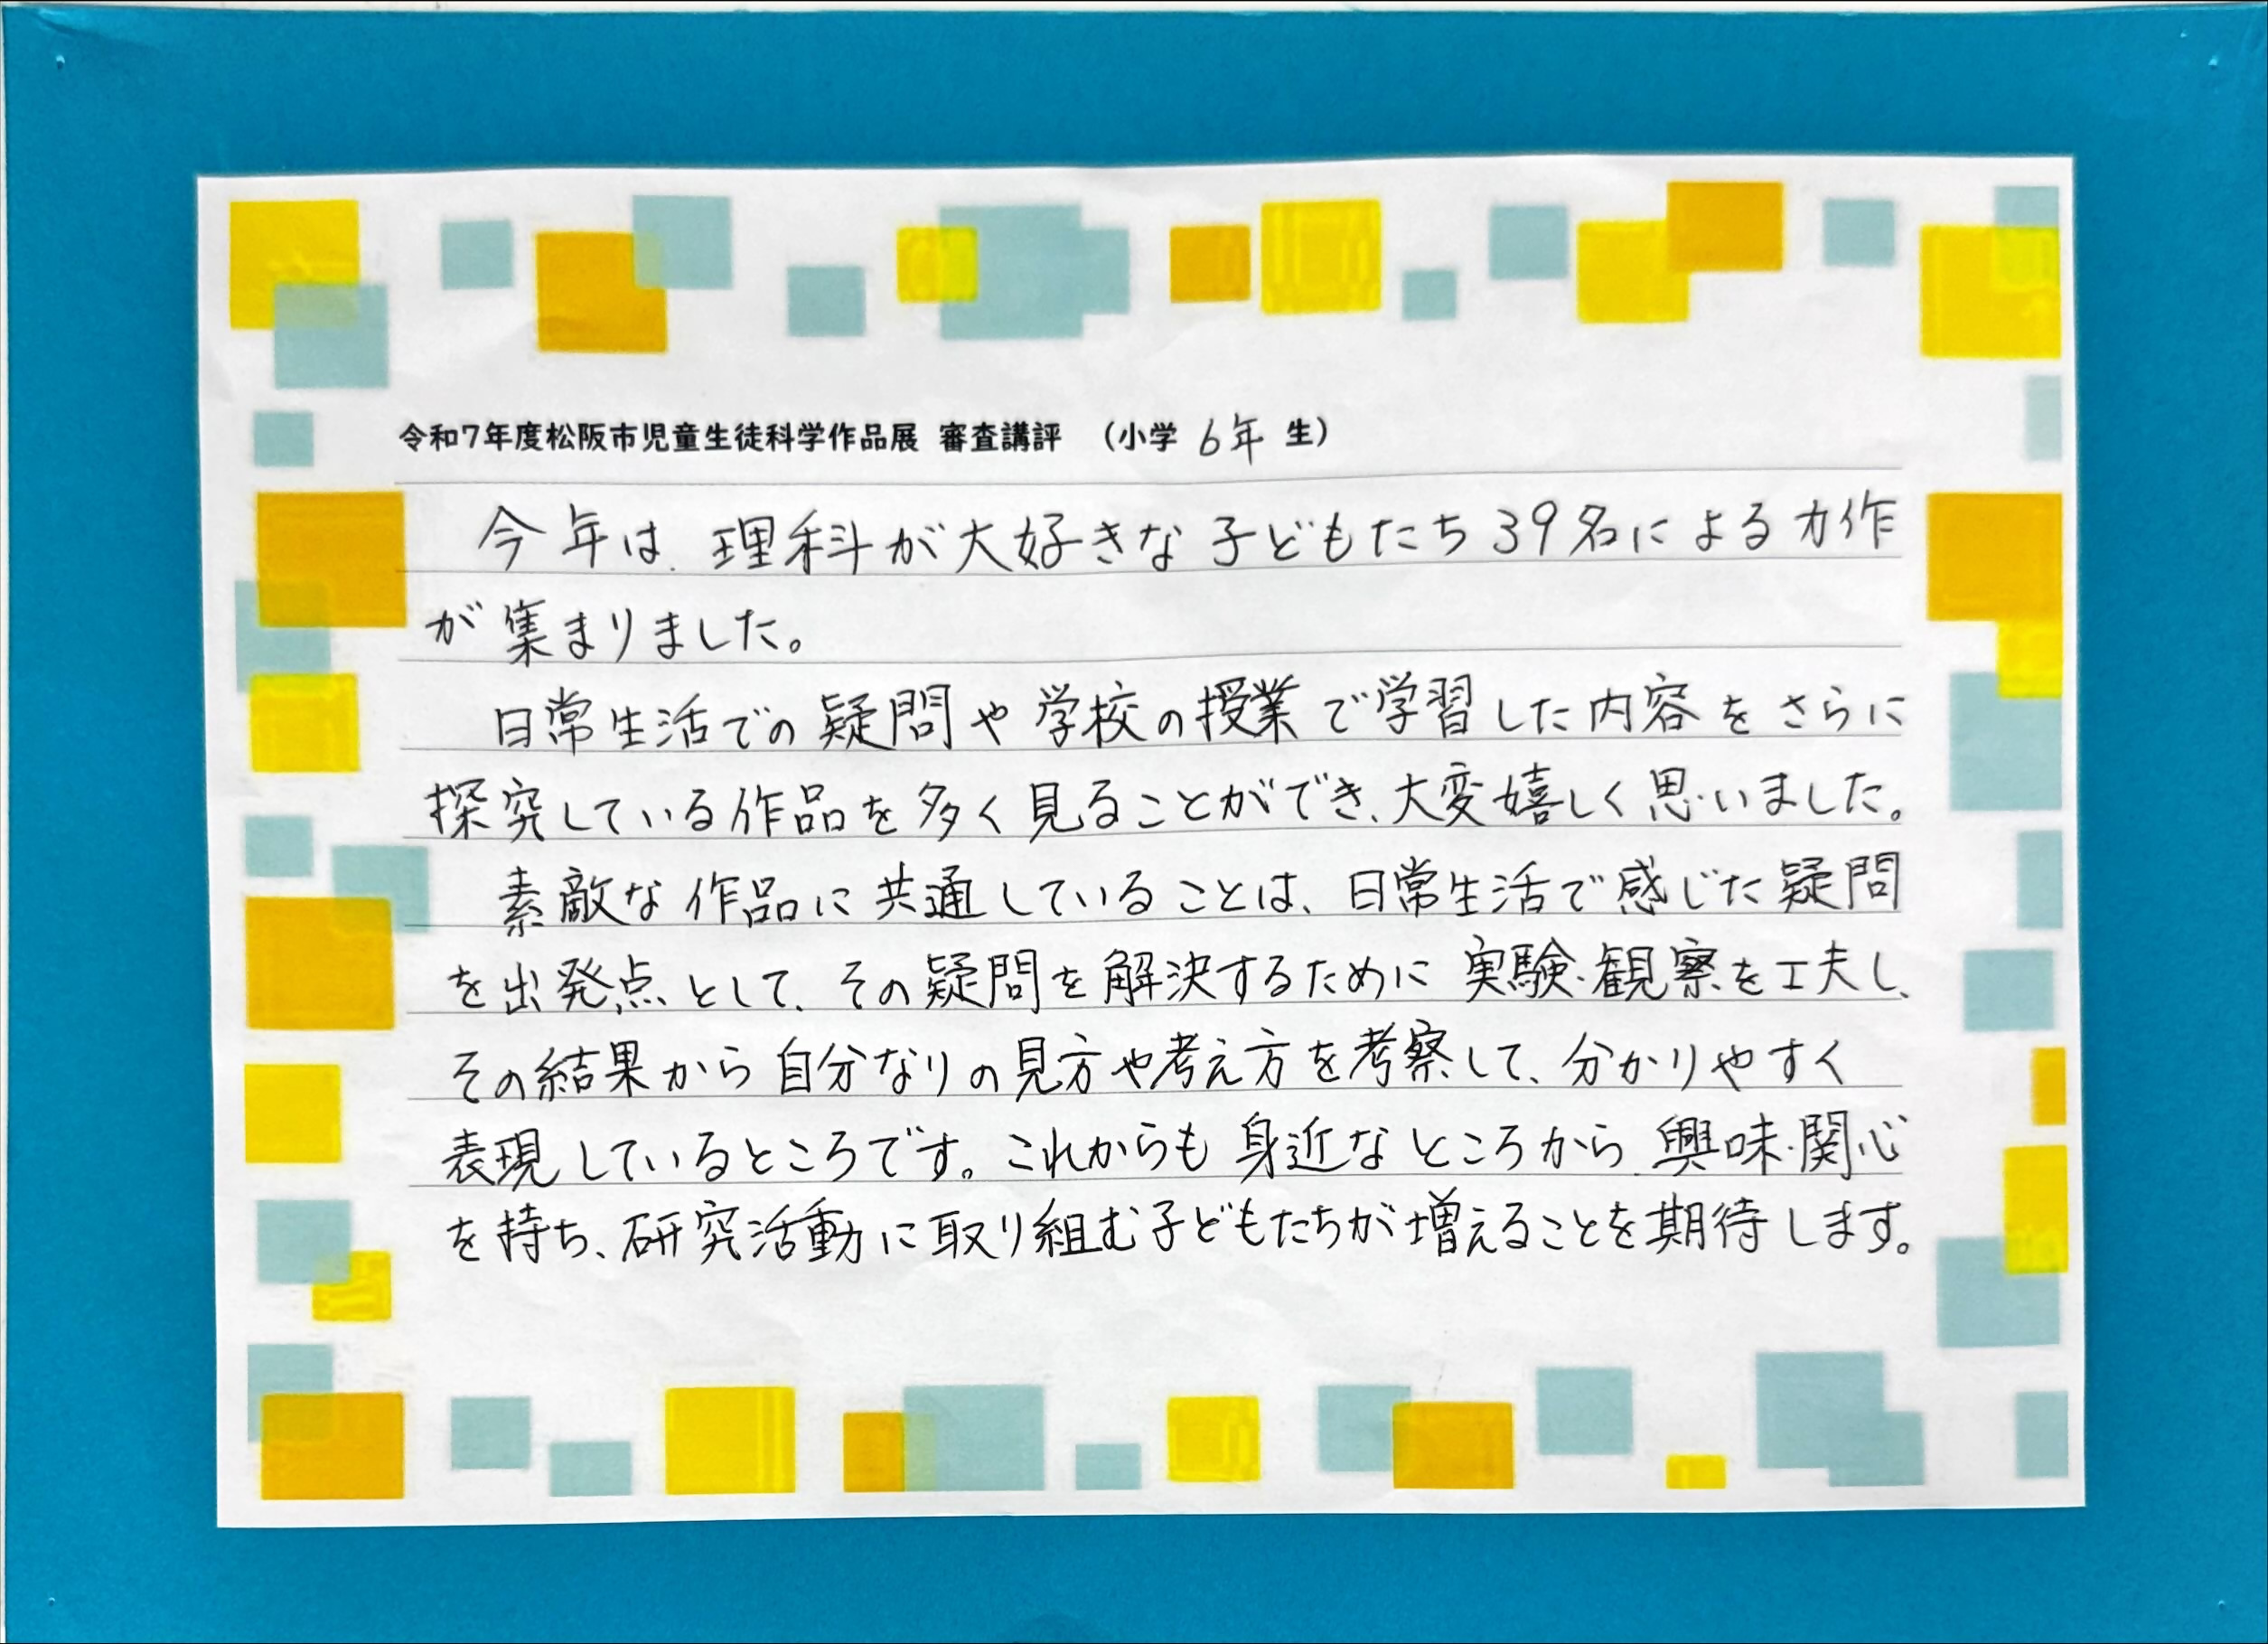 令和7年度松阪市児童生徒科学作品展 審査講評 （小学 6年 生）
今年は、理科が大好きな子どもたち39名による力作
が集まりました。
日常生活での疑問や学校の授業で学習した内容をさらに
探究している作品を多く見ることができ、大変嬉しく思いました。
素敵な作品に共通していることは、日常生活で感じた疑問
を出発点として、その疑問を解決するために実験・観察を工夫し、
その結果から自分なりの見方や考え方を考察して、分かりやすく
表現しているところです。これからも身近なところから、興味・関心
を持ち、研究活動に取り組む子どもたちが増えることを期待します。